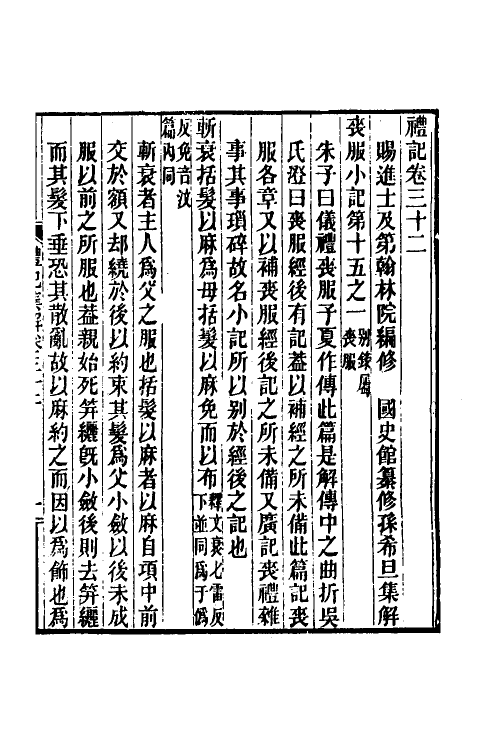 禮記卷三十二
賜進士及第翰林院編修　國史館纂修孫希旦集解
喪服小記第十五之一別錄屬喪服
朱子曰儀禮喪服子夏作傳此篇是解傳中之曲折吳
氏澄曰喪服經後有記蓋以補經之所未備此篇記喪
服各章又以補喪服經後記之所未備又廣記喪禮雜
事其事瑣碎故名小記所以别於經後之記也
斬衰括髮以麻爲母括髮以麻免而以布釋文衰七雷反下並同爲于僞
反免音汶篇內同
斬衰者主人爲父之服也括髮以麻者以麻自項中前
交於額又却繞於後以約束其髮爲父小斂以後未成
服以前之所服也蓋親始死笄纚旣小斂後則去笄纚
而其髮下垂恐其散亂故以麻約之而因以爲飾也爲